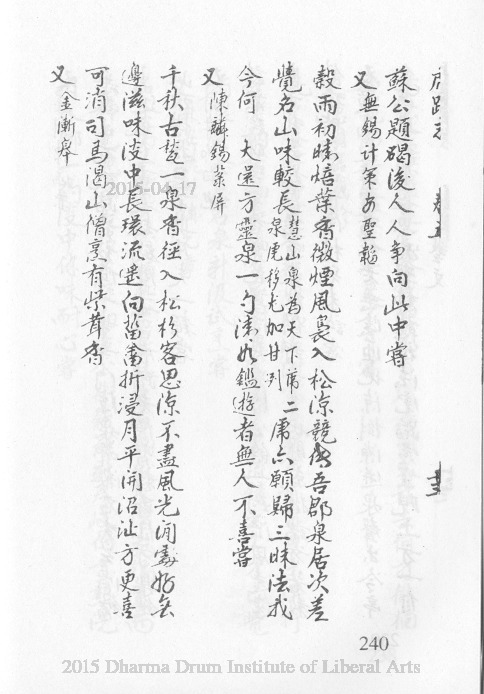 蘇公題碣後人人爭向此中嘗
又 無錫計
穀雨初晴焙葉香微煙風裊入松涼競傳吾郡泉居次差
覺名山味較長 慧山泉為天下第二 虎跑移尤加甘冽 席亦願歸三昧法我
今何 大還方靈泉一勺清如鑑遊者無人不喜嘗
又 陳 錫 屏
千秋古 一泉香徑入松杉客思涼不盡風光閒處好無
邊滋味淡中長環流遙向 畬折浸月平開沼沚方更喜
可消司馬渴山僧烹有紫茸香
又 金漸皋
2015-04-17
240
2015 Dharma Drum Institute of Liberal Arts